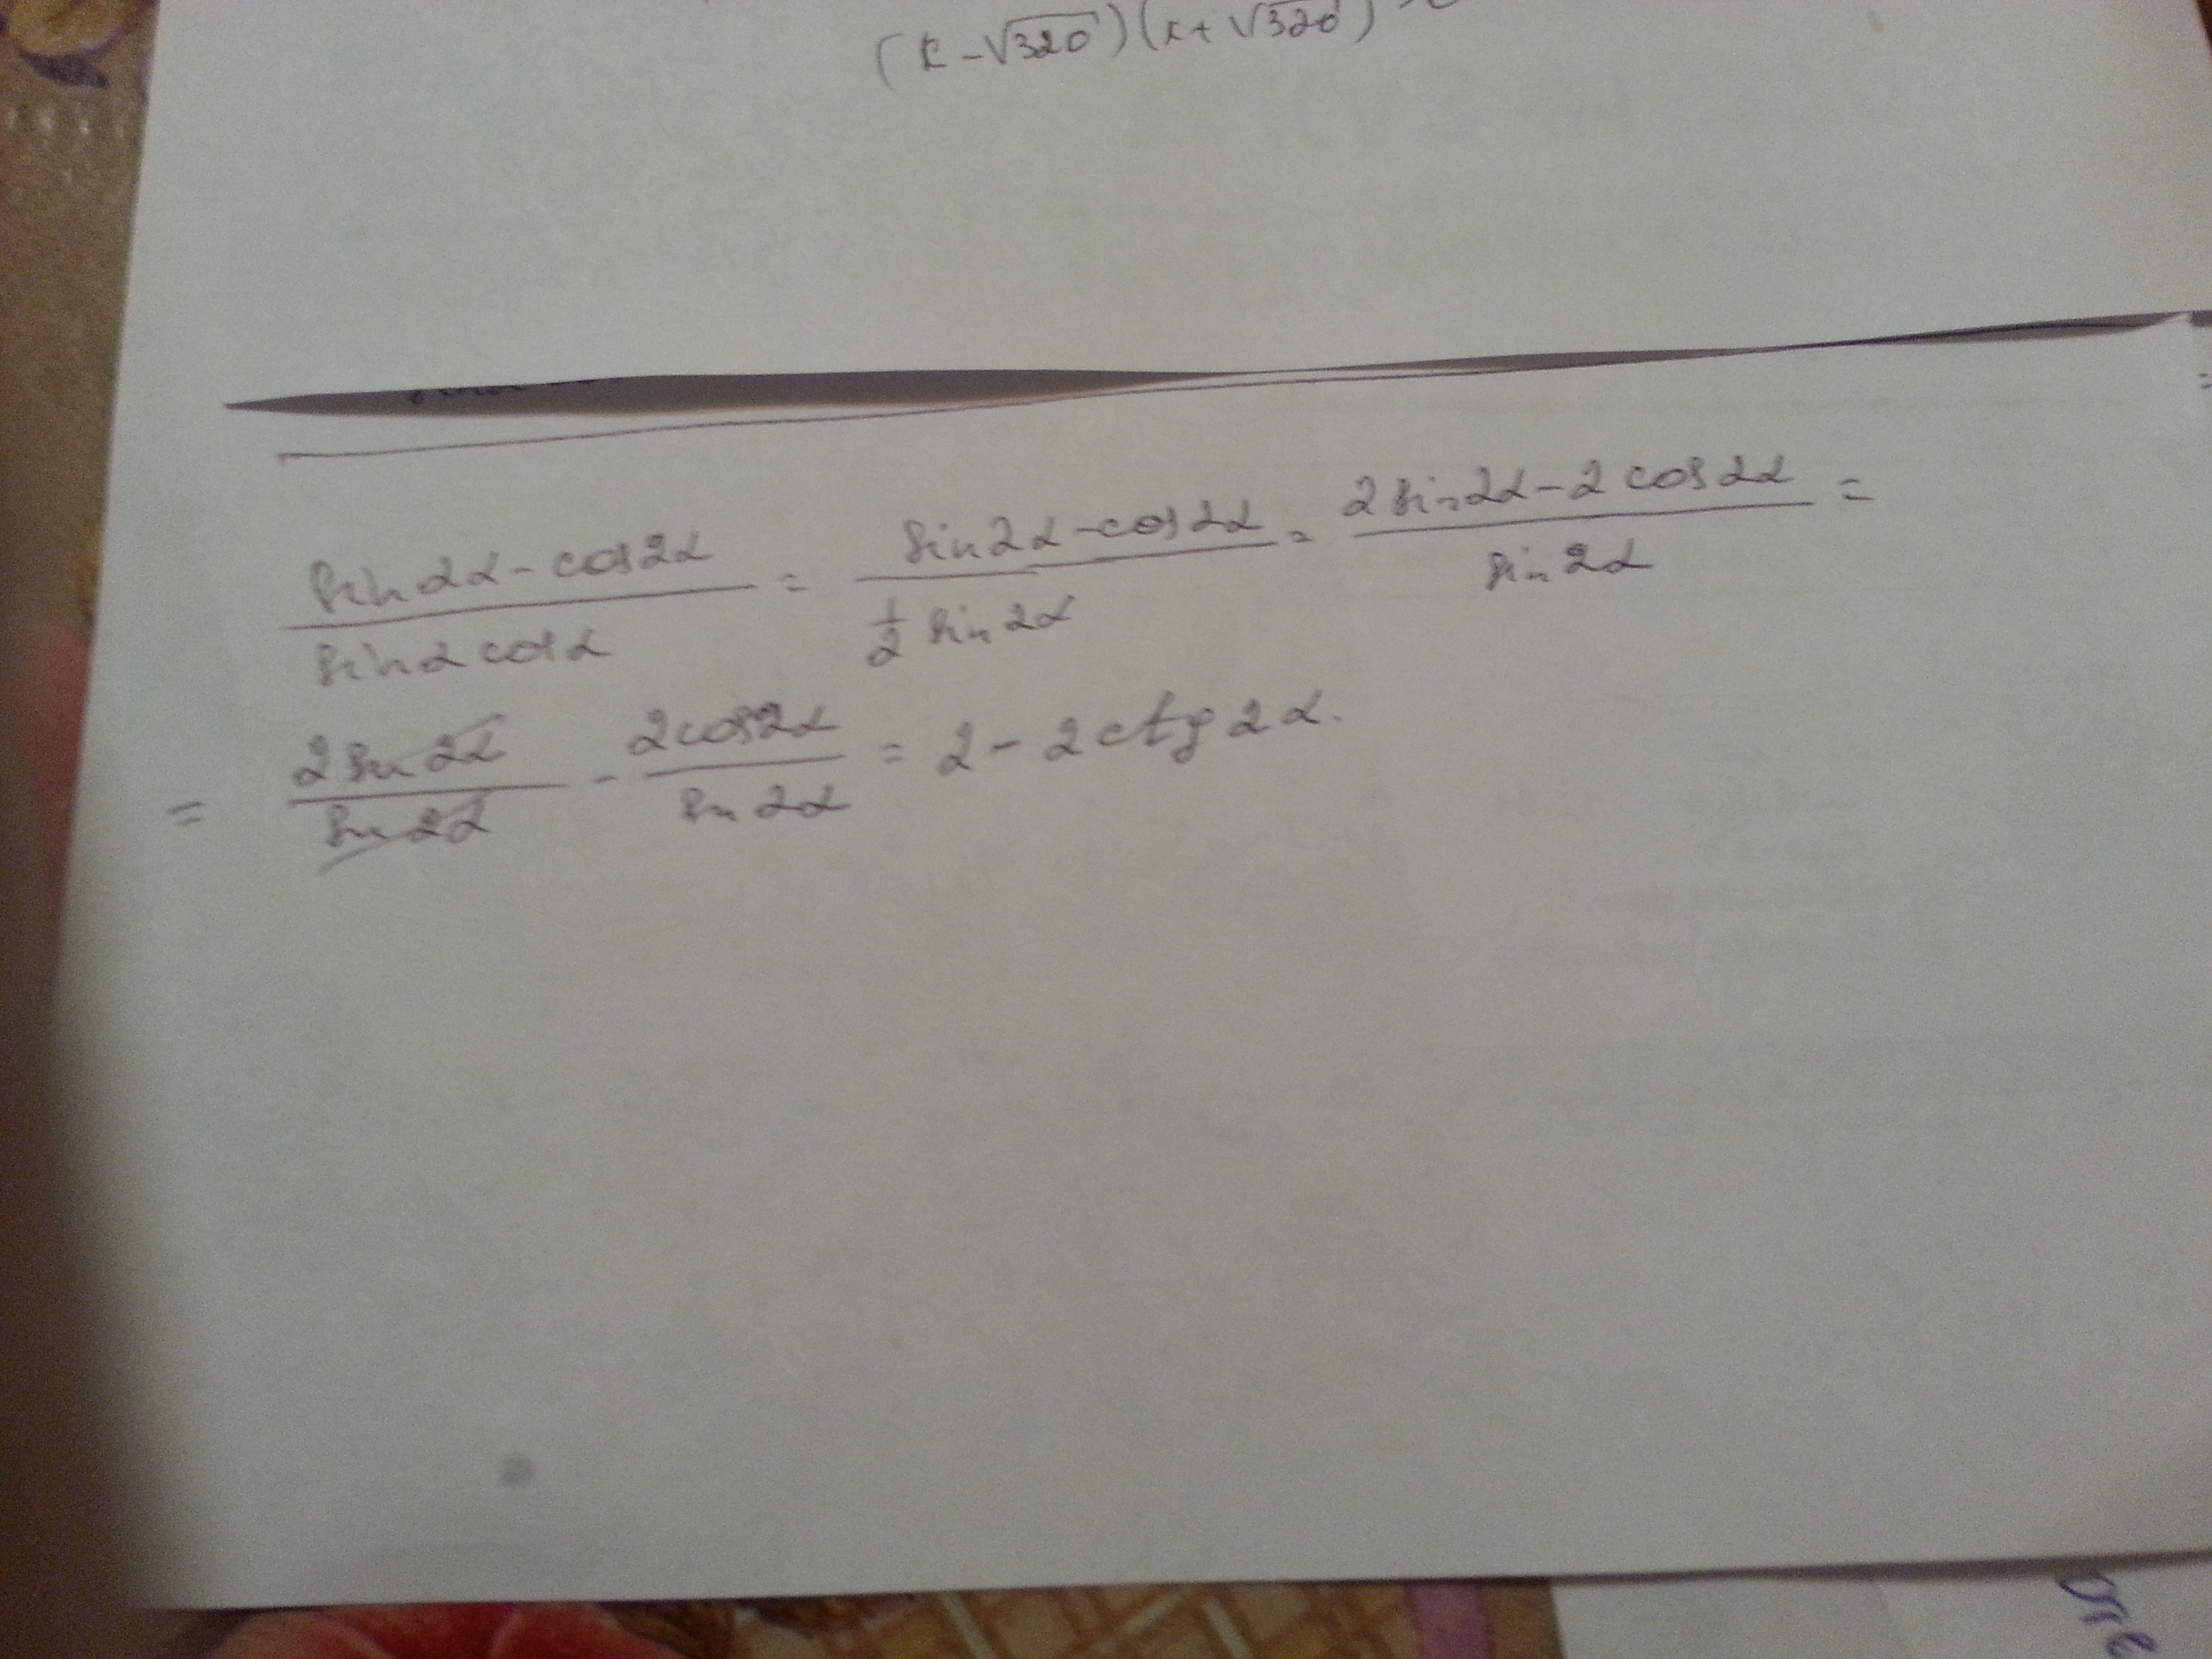 (x-√320)(x+√320)
(sin2α-cos2α)/(sinα cosα) = (sin2α-cos2α)/(1/2 sin2α) = (2sin2α-2cos2α)/(sin2α) =
= (2sin2α)/(sin2α) - (2cos2α)/(sin2α) = 2-2ctg2α.